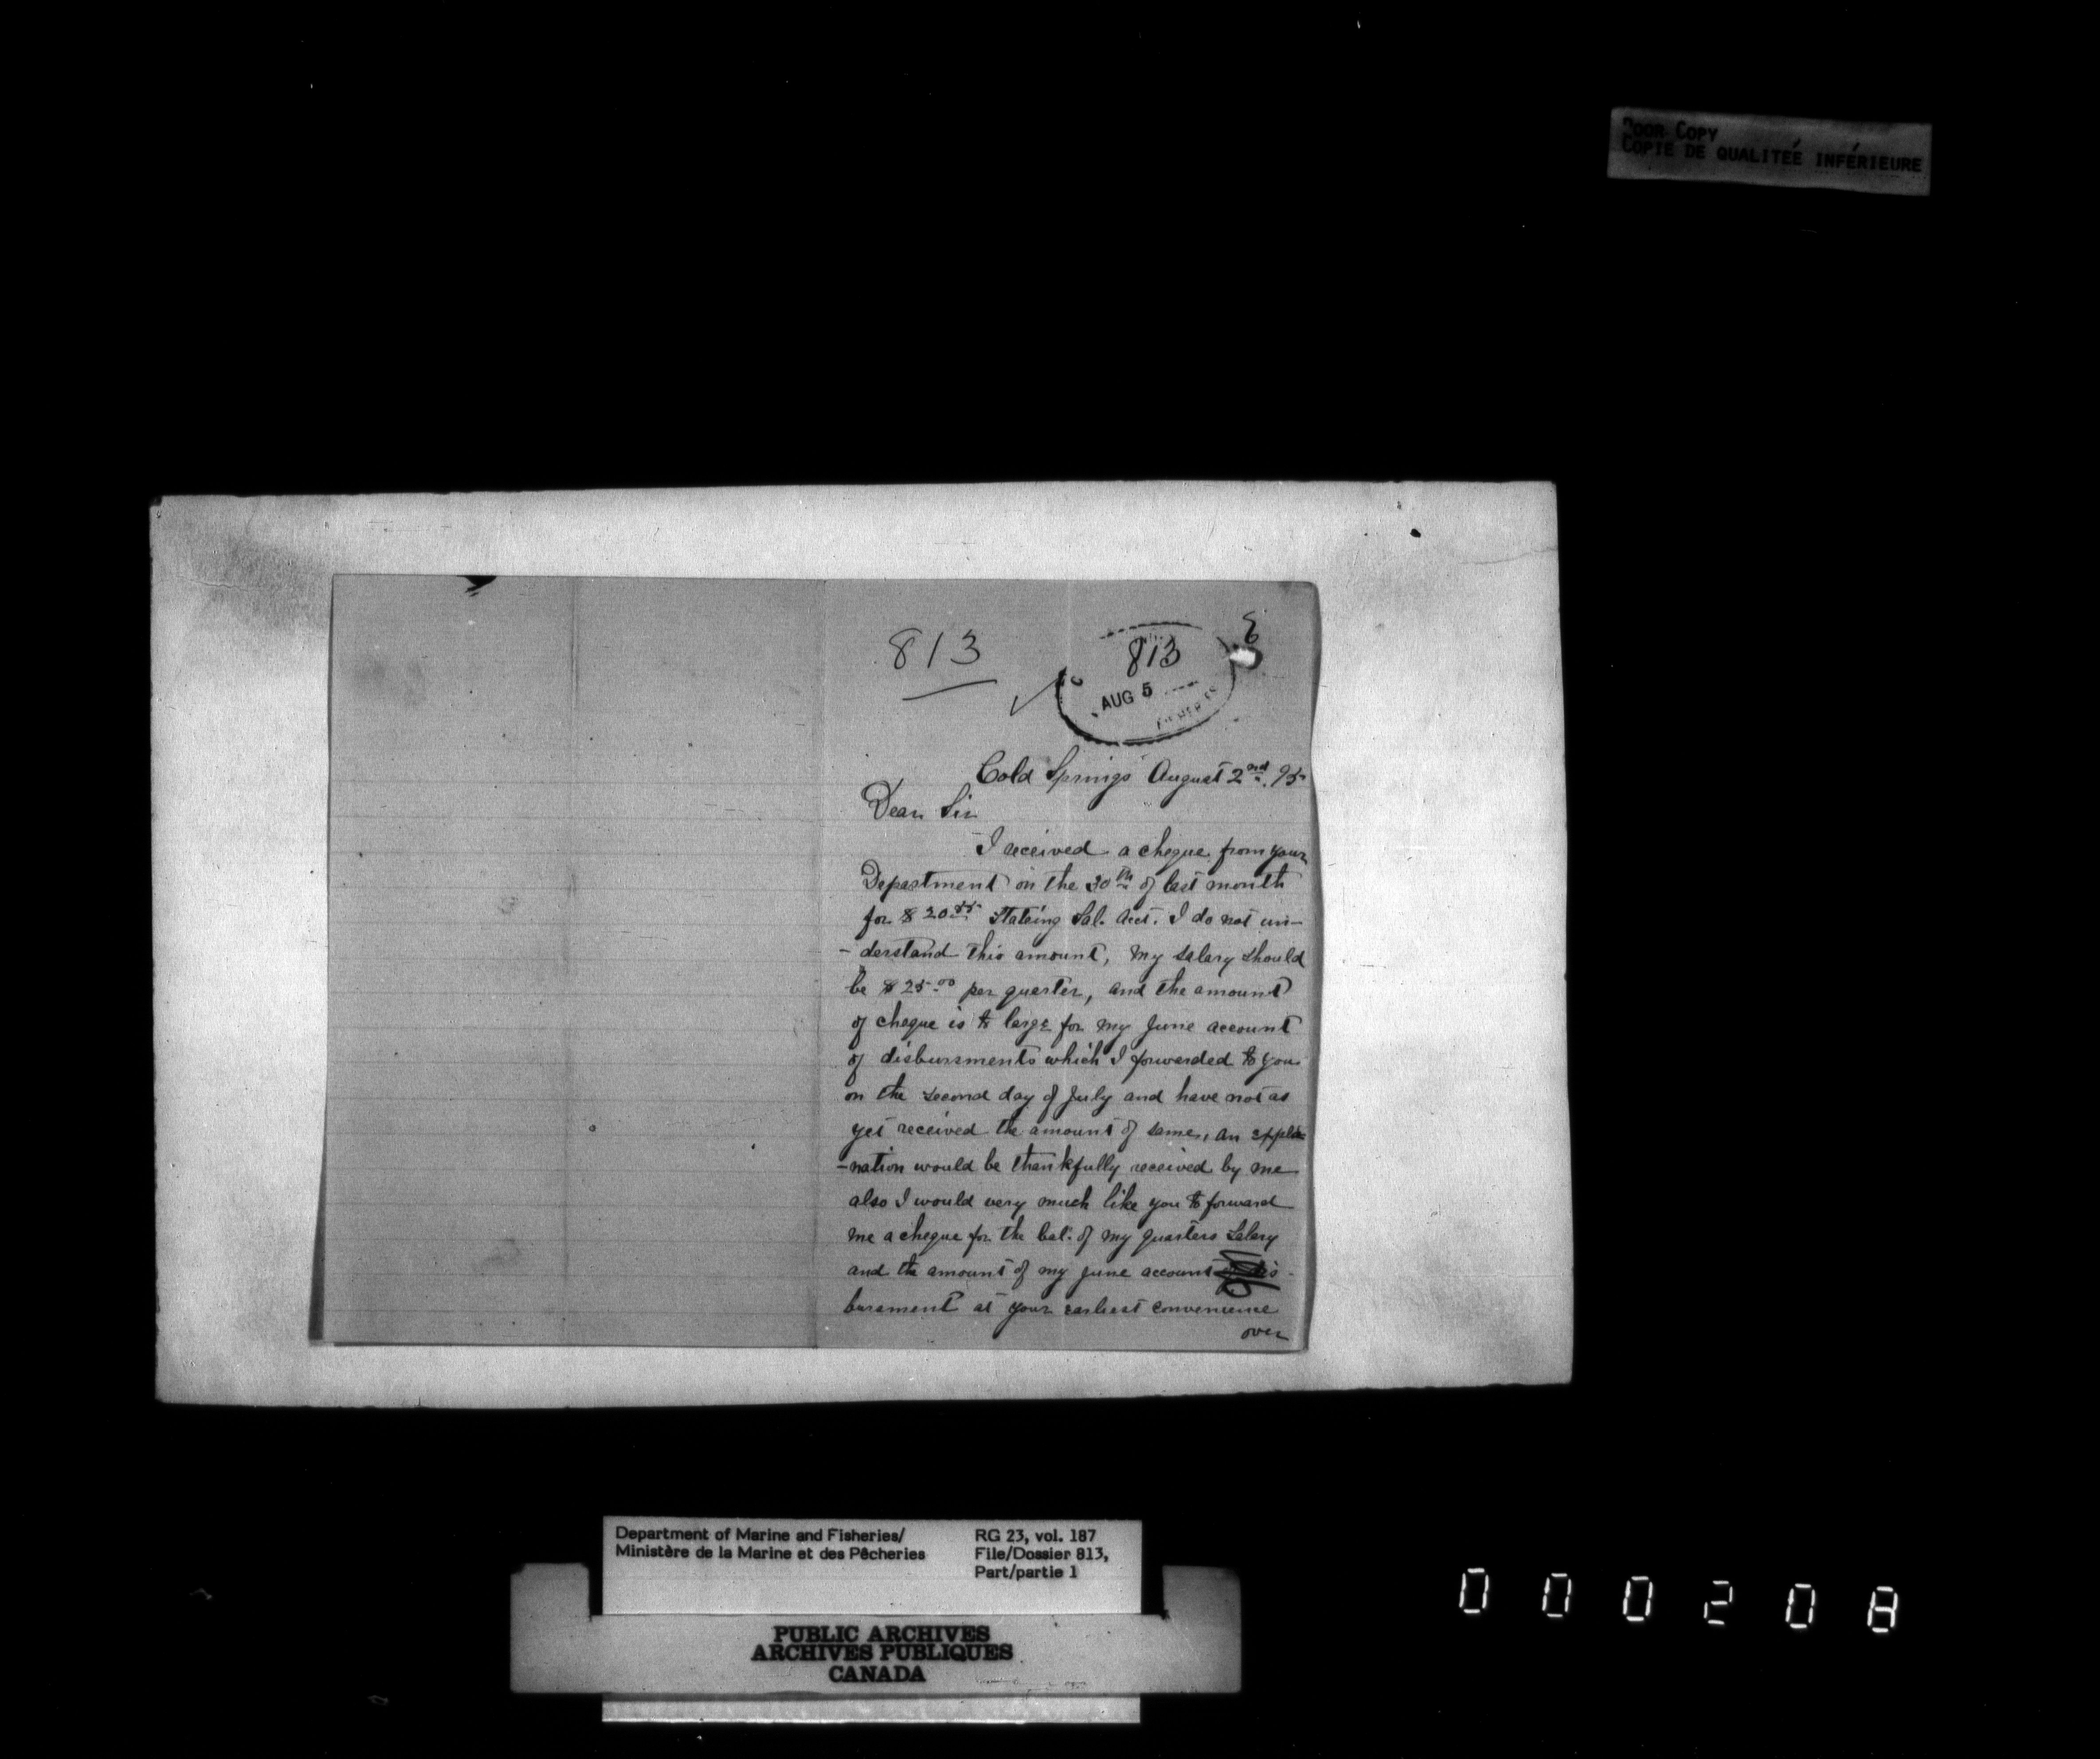 POOR COPY
COPIE DE QUALITEÉ INFÉRIEURE
813
813
AUG 5
Cold Springs August 2nd. 95
Dear Sir
I received a cheque from your
Department on the 30th of last month
for $20.55 Stateing Sal. Acct. I do not un-
-derstand this amount, My salary should
be $25.00 per quarter, and the amount
of cheque is to large for my June account
of disbursments which I forwarded to you
on the second day of July and have not as
yet received the amount of same, an expla
-nation would be thankfully received by me
also I would very much like you to forward
me a cheque for the bal. of my quarters Salary
and the amount of my June account dis-
bursment at your earliest convenience
over
Department of Marine and Fisheries/
Ministère de la Marine et des Pêcheries
RG 23, vol. 187
File/Dossier 813,
Part/partie 1
PUBLIC ARCHIVES
ARCHIVES PUBLIQUES
CANADA
000208